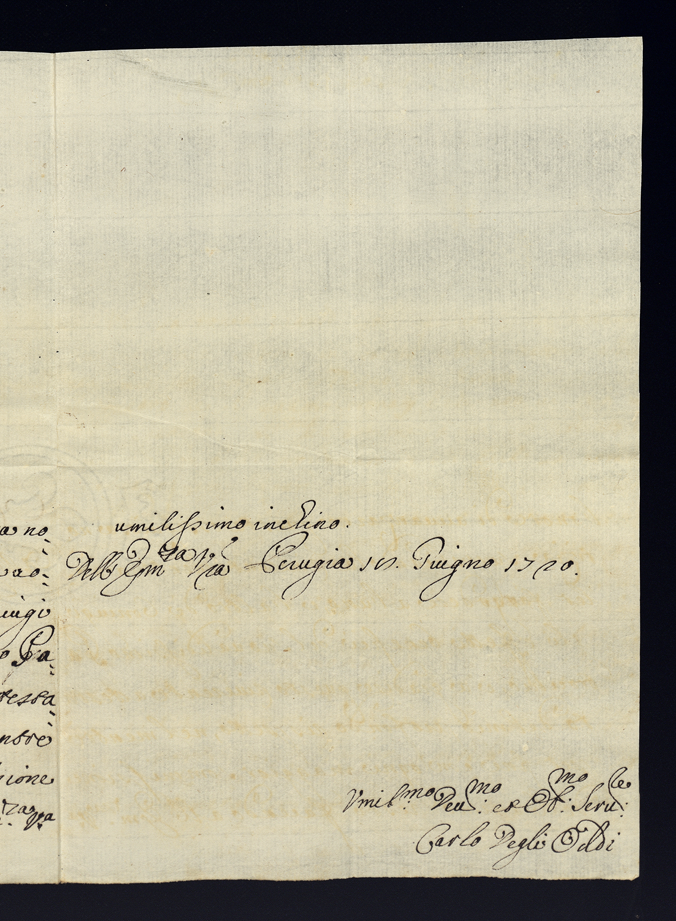 a no-
uao-
uigi
o Pa-
ressa
ntre
ione
za Vra
umilissimo inchino.
Dell' Em.za V.ra Perugia Giugno 1720.
Vmil.mo Deu.mo et Ob.mo Seru.le
Carlo Degli Oddi